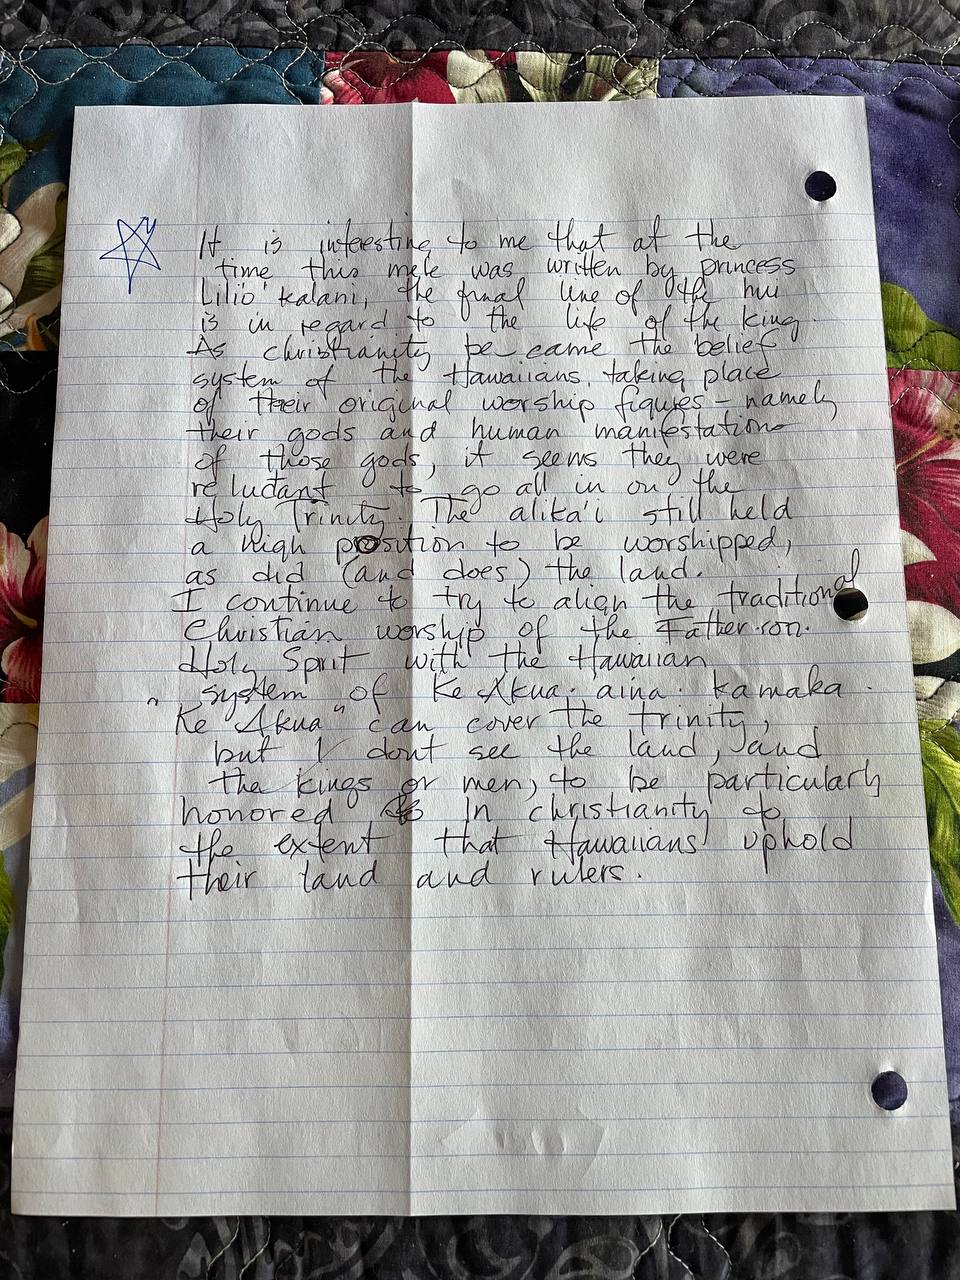 It is interesting to me that at the
time this mele was written by princess
Lilio'kalani, the final line of the hui
is in regard to the life of the king.
As christianity be came the belief
system of the Hawaiians, taking place
of their original worship figures - namely
their gods and human manifestations
of those gods, it seems they were
reluctant to go all in on the
Holy Trinity. The alika'i still held
a high position to be worshipped,
as did (and does) the land.
I continue to try to align the traditional
Christian worship of the Father·son·
Holy Sprit with the Hawaiian
system of Ke Akua· aina· kamaka·
"Ke Akua" can cover the trinity,
but I dont see the land, and
the kings or men, to be particularly
honored In christianity to
the extent that Hawaiians uphold
their land and rulers.